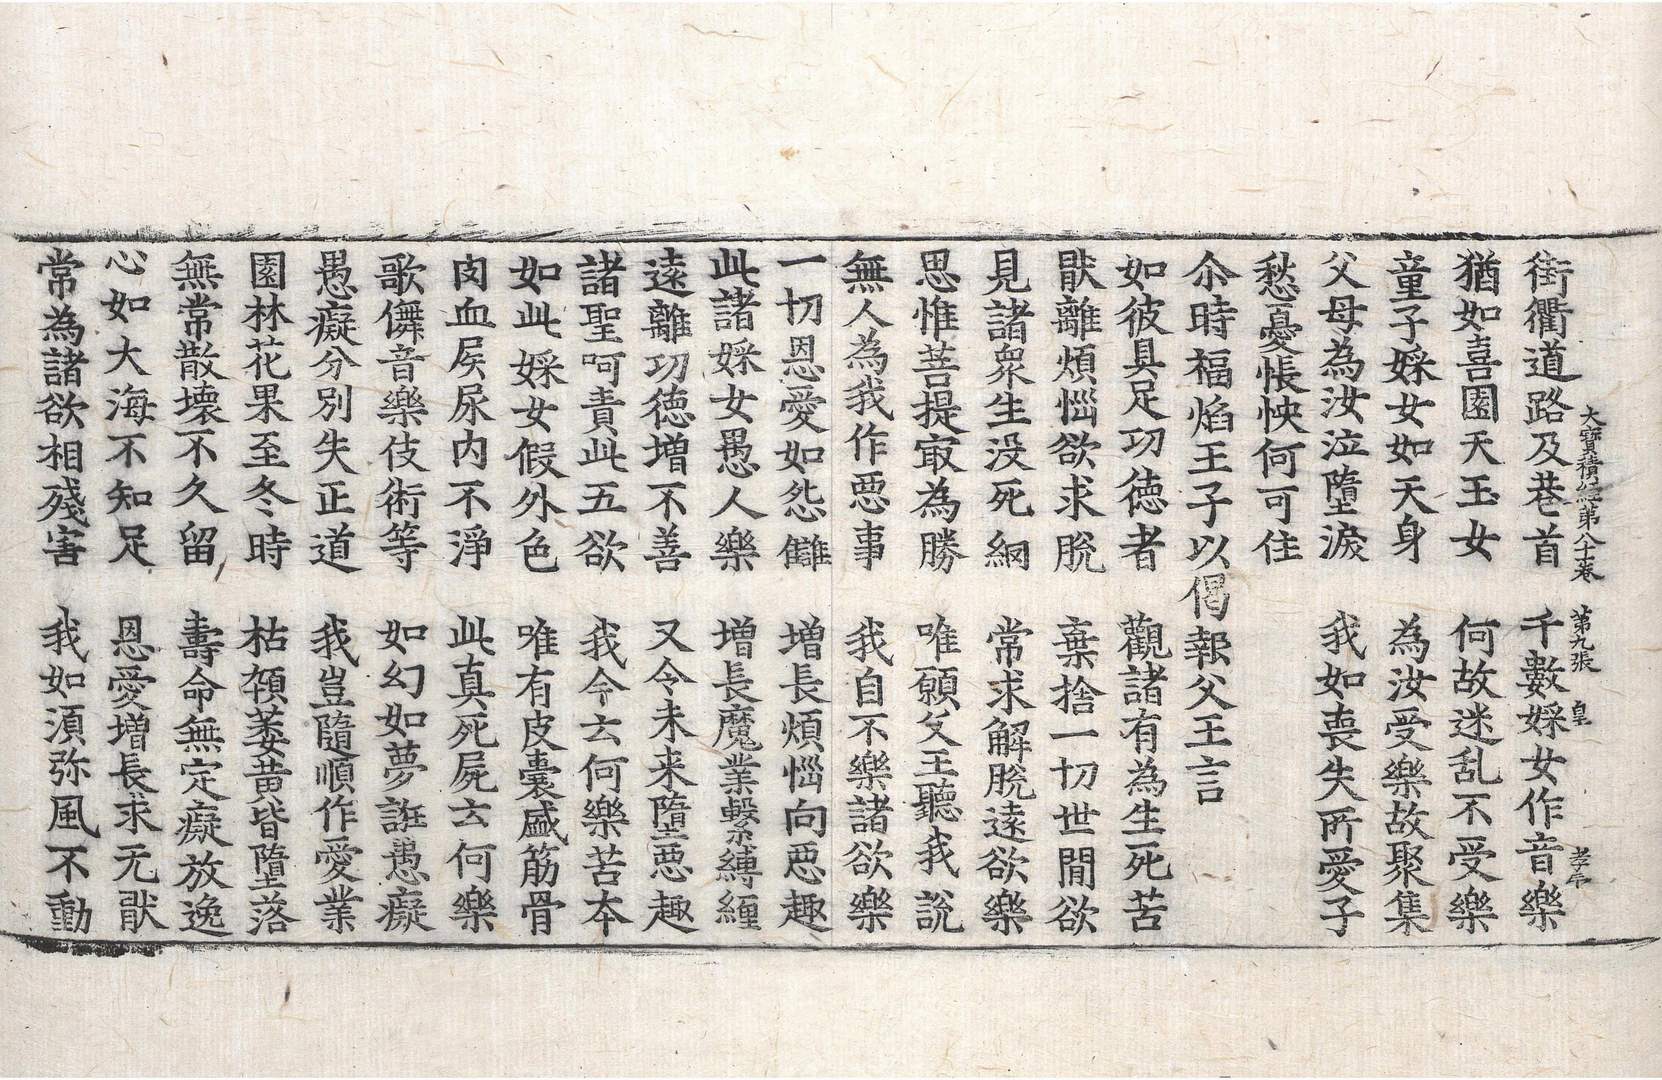 大寶積經第八十卷 第九張 皇
街衢道路及巷首 千數婇女作音樂
猶如喜園天玉女 何故迷乱不受樂
童子婇女如天身 為汝受樂故聚集
父母為汝泣墮淚 我如喪失所愛子
愁憂悵怏何可住
尒時福焰王子以偈報父王言
如彼具足功德者 觀諸有為生死苦
猒離煩惱欲求脫 棄捨一切世間欲
見諸衆生没死網 常求解脫遠欲樂
思惟菩提㝡為勝 唯願父王聽我說
無人為我作惡事 我自不樂諸欲樂
一切恩愛如怨讎 增長煩惱向惡趣
此諸婇女愚人樂 增長魔業繫縛纏
遠離功德增不善 又令未来墮惡趣
諸聖呵責此五欲 我今云何樂苦本
如此婇女假外色 唯有皮囊盛筋骨
肉血屎尿内不淨 此真死屍云何樂
歌儛音樂伎術等 如幻如夢誑愚癡
愚癡分別失正道 我豈隨順作愛業
園林花果至冬時 枯顇萎黄皆墮落
無常散壞不久留 壽命無定癡放逸
心如大海不知足 恩愛增長求无猒
常為諸欲相殘害 我如須弥風不動